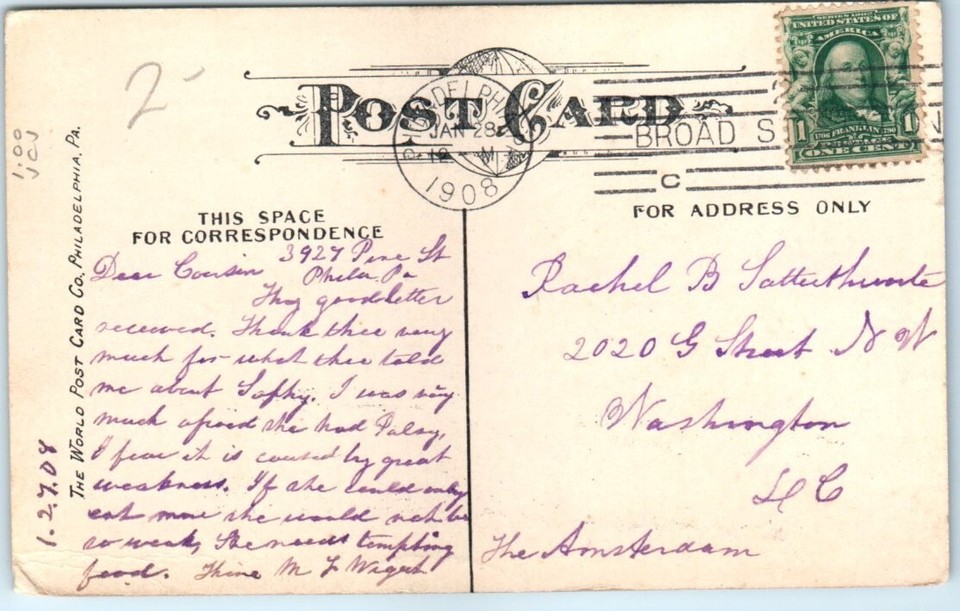 2
1.00
POST CARD
PHILADELPHIA
JAN 28
12 M
1908
BROAD S
C
SERIES 1902
UNITED STATES OF
AMERICA
1 1706 FRANKLIN 1790 1
ONE CENT
THIS SPACE
FOR CORRESPONDENCE
FOR ADDRESS ONLY
THE WORLD POST CARD CO., PHILADELPHIA, PA.
1.27.08
3927 Pine St
Dear Cousin Phila. Pa
Thy good letter
received. Thank thee very
much for what thee told
me about Sophy. I was very
much afraid she had Palsy,
I fear it is caused by great
weakness. If she could only
eat more she would not be
so weak, She needs tempting
food. Thine M F
Rachel B Satterthwaite
2020 G Street N W
Washington
D C
The Amsterdam